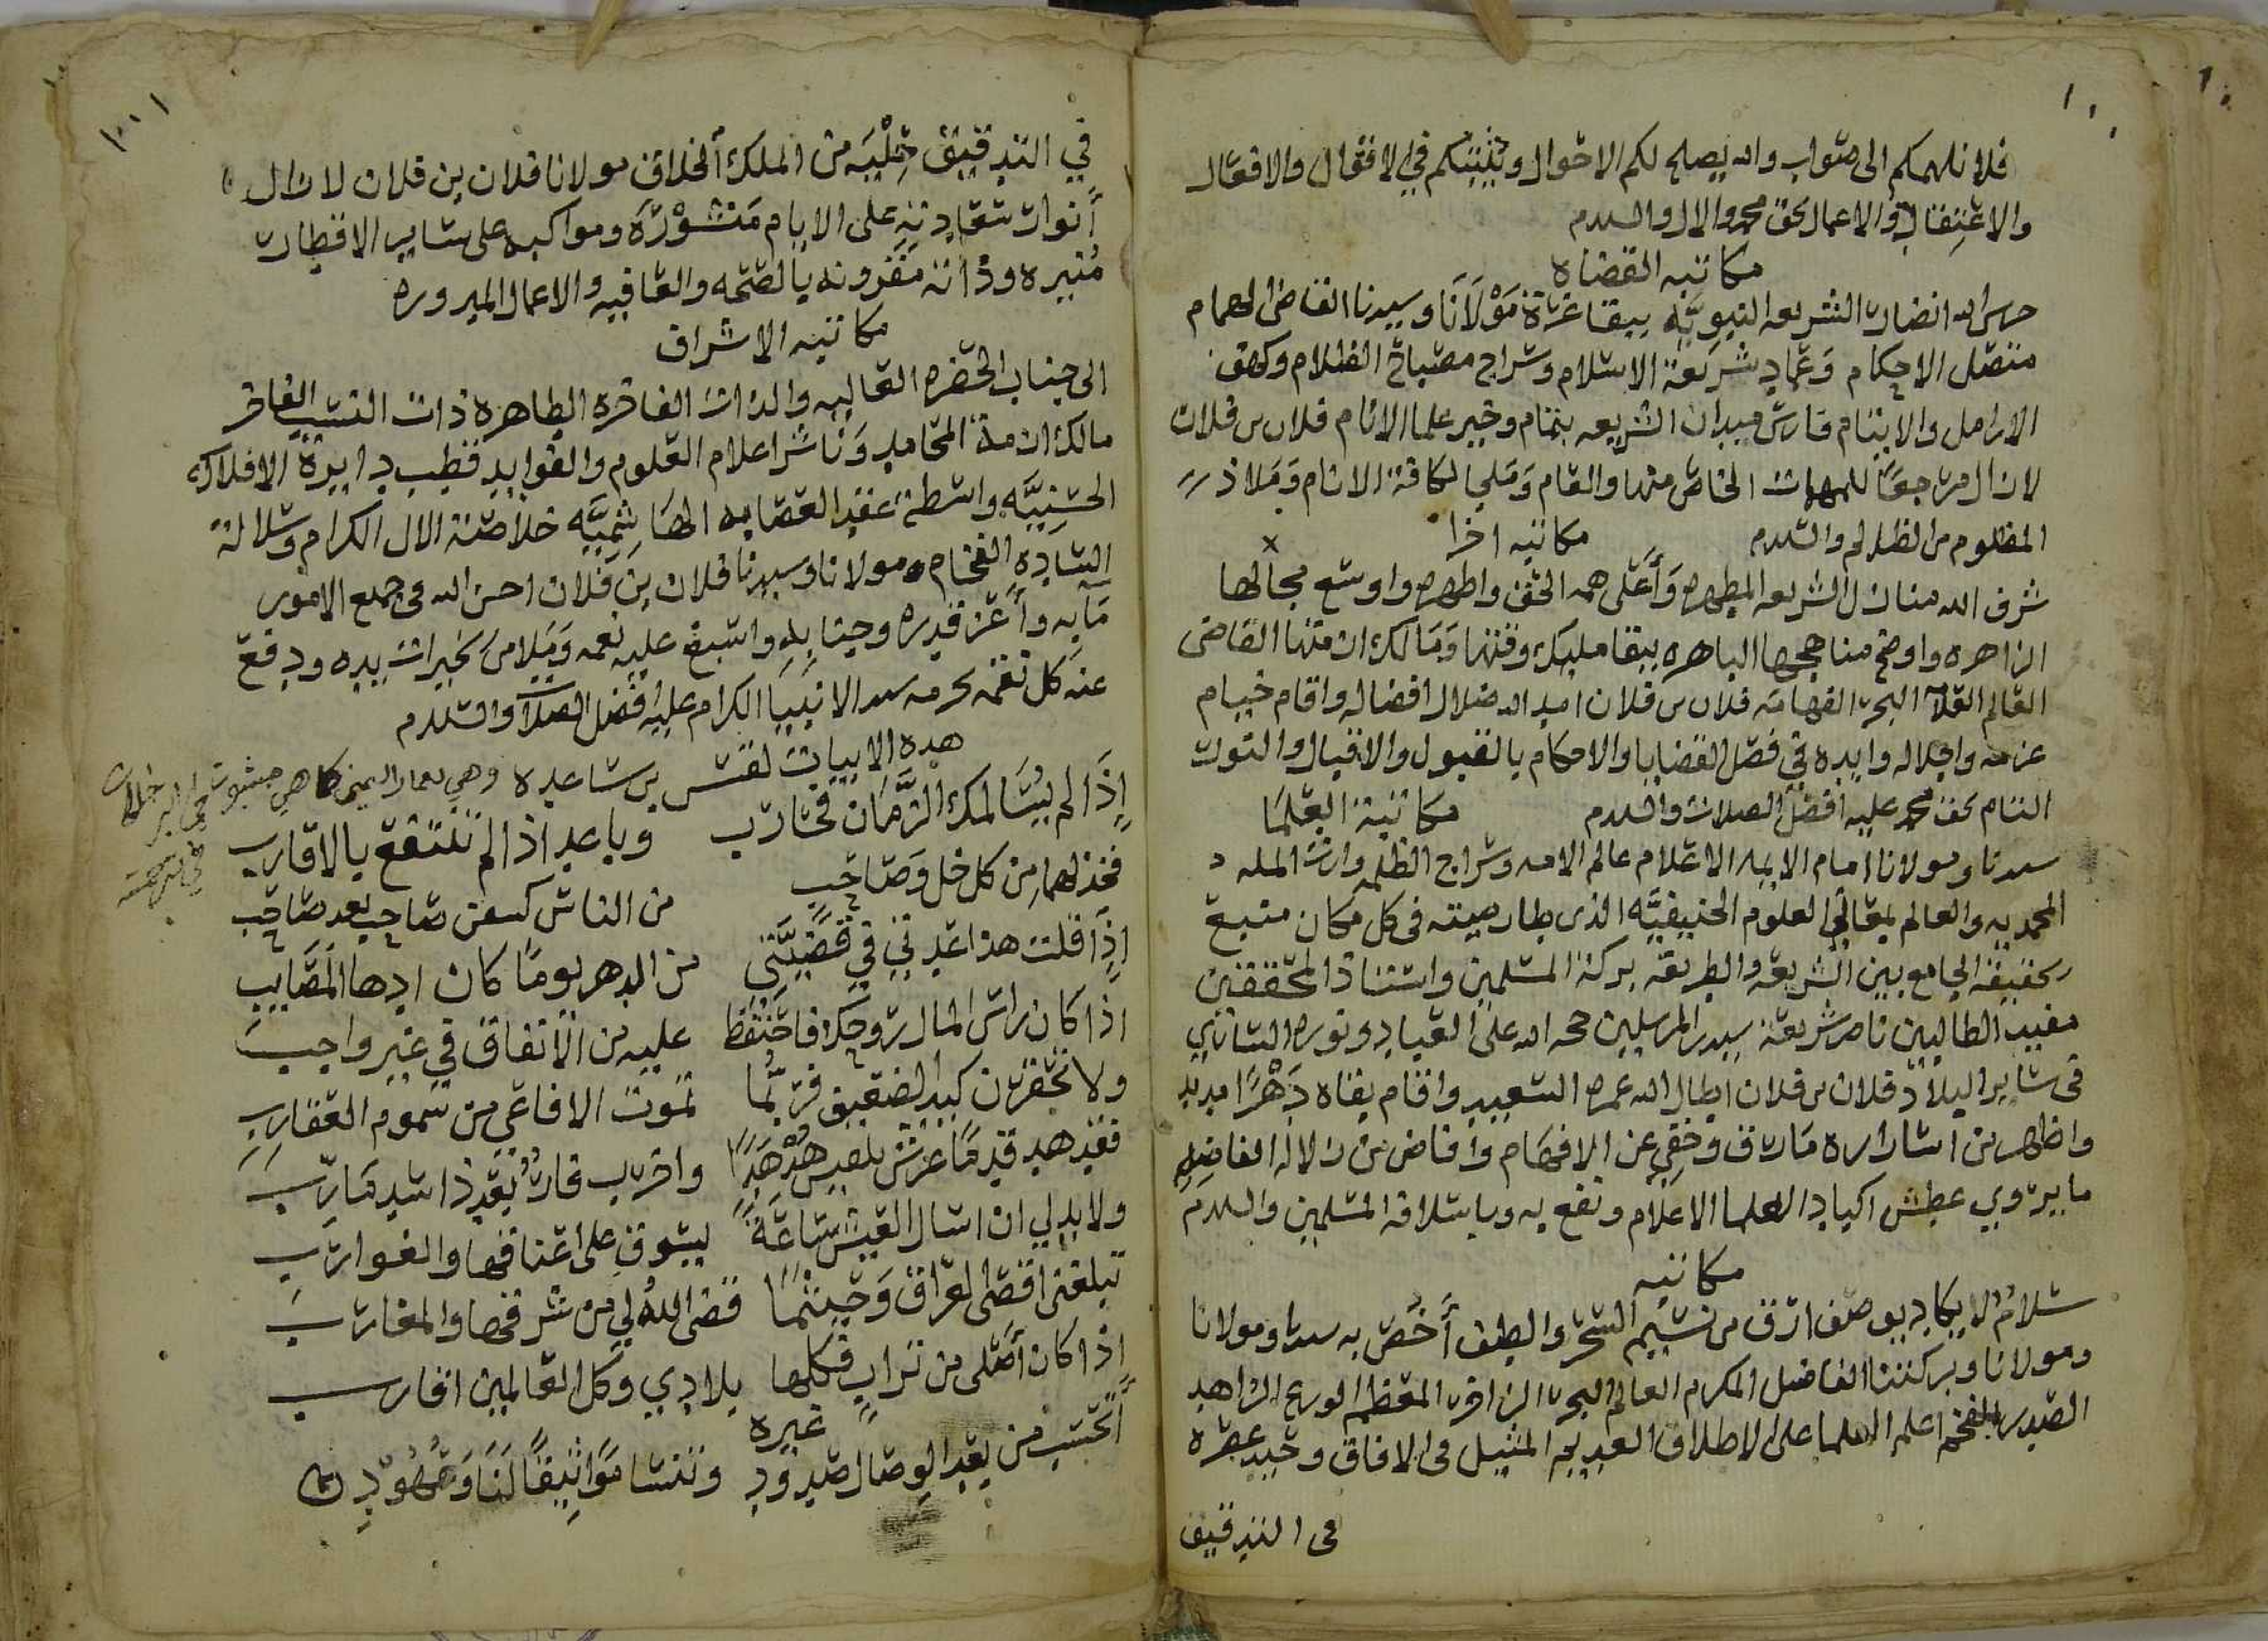 فلا نلهمكم الى صواب والله يصلح لكم الاحوال ويثبتكم في الاقوال والافعال
والاعتقال والاعمال بحق محمد والال والسلام
مكاتبه القضاه
حرس الله انصار الشريعه النبويه ببقا عزة مولانا وسيدنا القاضي الهمام
متصل الاحكام وعماد شريعة الاسلام وسراج مصباح الظلام وكهف
الارامل والايتام فارس ميدان الشريعه بتمام وخير علما الانام فلان بن فلان
لازال مرجعا للمهمات الخاص منها والعام وملجا لكافة الانام وملاذ
المظلوم من الظلام والسلام مكاتبه اخرا
شرف الله منازل الشريعه المطهره وأعلى همه الحق واظهره واوسع مجالها
الزاهره واوضح مناهجها الباهره ببقا مليك وقتها ومالك ازمتها القاضي
العالم العلامه البحر الفهامه فلان بن فلان امد الله ضلال افضاله واقام خيام
عزه واجلاله وايده في فصل القضايا والاحكام بالقبول والاقبال والتوت
التام بحق محمد عليه افضل الصلاة والسلام مكاتبة العلما
سيدنا ومولانا امام الايمه الاعلام عالم الامه وسراج الظلمه وارث المله
المحمديه والعالم بمعالي العلوم الحنيفيه الذي طار صيته في كل مكان منبع
الحقيقه الجامع بين الشريعه والطريقه بركة المسلمين واستاذ المحققين
مفيد الطالبين ناصر شريعة سيد المرسلين حجه الله على العباد ونوره الساري
في ساير البلاد فلان بن فلان اطال الله عمره السعيد واقام بقاه دهرا مديد
واظهر من اسراره مارق وخفي عن الافهام وافاض من زلاله الفاضل
ما يروي عطش اكباد العلما الاعلام ونفع به وباسلافه المسلمين والسلام
مكاتبه
سلام لا يكاد يوصف ارق من نسيم السحر والطف أخص به سيدنا ومولانا
ومولانا وبركتنا الفاضل المكرم العالم البحر الزاخر المعظم الورع الزاهد
الصدر المفخم اعلم العلما على الاطلاق العديم المثيل في الافاق وحيد عصره
في التدقيق
في التدقيق حليه من الملك الخلاق مولانا فلان بن فلان لازال
أنوار سعادته على الايام منشورة ومواكبه على ساير الاقطار
منيره وذاته مقرونه بالصحه والعافيه والاعمال المبروره
مكاتبه الاشراف
الى جناب الحضره العاليه والذات الفاخره الطاهره ذات النسب الفاخر
مالك ازمة المحامد وناشر اعلام العلوم والفوايد قطب دايرة الافلاك
الحسنيه واسطة عقد العصابه الهاشميه خلاصة الال الكرام وسلالة
الساده الفخام مولانا وسيدنا فلان بن فلان احسن الله في جميع الامور
مآبه وأعز قدره وجنابه واسبغ عليه نعمه وملا من الخيرات يده ودفع
عنه كل نقمه بحرمه سيد الانبيا الكرام عليه افضل الصلاة والسلام
هذه الابيات لقس بن ساعده وهي لعمار اليمني كما هي مثبوت
في ابن خلكان
في ترجمته
إذا لم يسالمك الزمان فحارب وباعد اذا لم تنتفع بالاقارب
فخذ لهما من كل خل وصاحب من الناس كم من صاحب بعد صاحب
اذا قلت هذا عدتي في قضيتي من الدهر يوما كان ادها المصايب
اذا كان راس المال روحك فاحتفظ عليه من الانفاق في غير واجب
ولا تحقرن كيد الضعيف فربما تموت الافاعي من سموم العقارب
فقد هد قدما عرش بلقيس هدهدا واخرب فار بعد ذا سد مارب
ولا بد لي ان اسال العيش ساعة بسوق على اعناقها والغوارب
تبلغني اقصى العراق وحيثما قضى الله لي من شرقها والمغارب
إذا كان أصلي من تراب فكلها بلادي وكل العالمين اقارب
غيره
أتحسب من بعد الوصال صدود وتنسا مواثيقا لنا وعهود